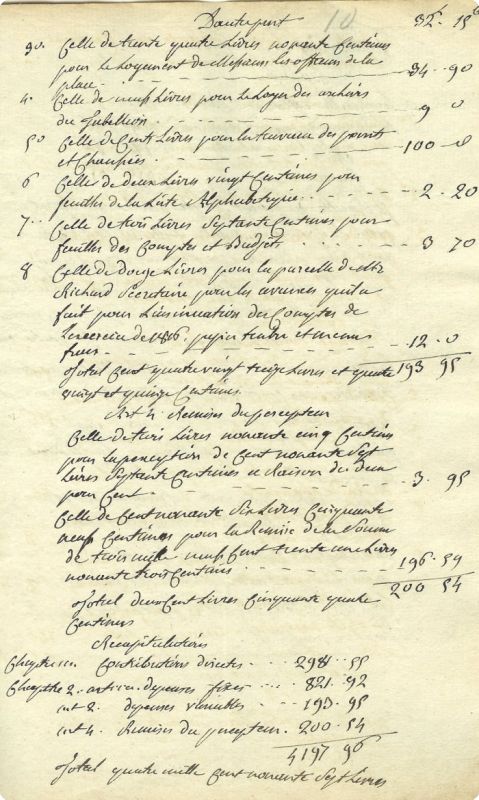 D'autre part 10 32 15
3o. Celle de trente quatre Livres nonante Centimes
pour le Logement de Messieurs les officiers de la
place 34 90
4. Celle de neuf Livres pour le Loyer des archives
du Tabellion 9 0
5o Celle de Cent Livres pour les travaux des ponts
et Chaussées 100 0
6 Celle de deux Livres vingt Centimes pour
feuilles de la Liste Alphabetique 2 20
7 Celle de trois Livres Septante Centimes pour
feuilles des Comptes et Budjets 3 70
8 Celle de Douze Livres pour la parcelle de Mr
Richard Secretaire pour les avances qu'il a
fait pour L'insinuation des Comptes de
L'exercice de 1816. papier timbre et menus
frais 12 0
Total Cent quatre vingt treize Livres et quatre 193 95
vingt et quinze Centimes
Art 4. Remises du percepteur
Celle de trois Livres nonante cinq Centimes
pour la perception de Cent nonante Sept
Livres Septante Centimes a Raison de deux
pour Cent 3 95
Celle de Cent nonante Six Livres Cinquante
neuf Centimes pour la Remise de la Somme
de trois mille neuf Cent trente une Livres
nonante trois Centimes 196 59
200 54
Total deux Cent Livres Cinquante quatre
Centimes
Recapitulations
Chapitre 1er Contributions directes 2981 55
Chapitre 2. art. 1er depenses fixes 821 92
art 2. depenses variables 193 95
art 4. Remises du percepteur 200 54
4197 96
Total quatre mille Cent nonante Sept Livres